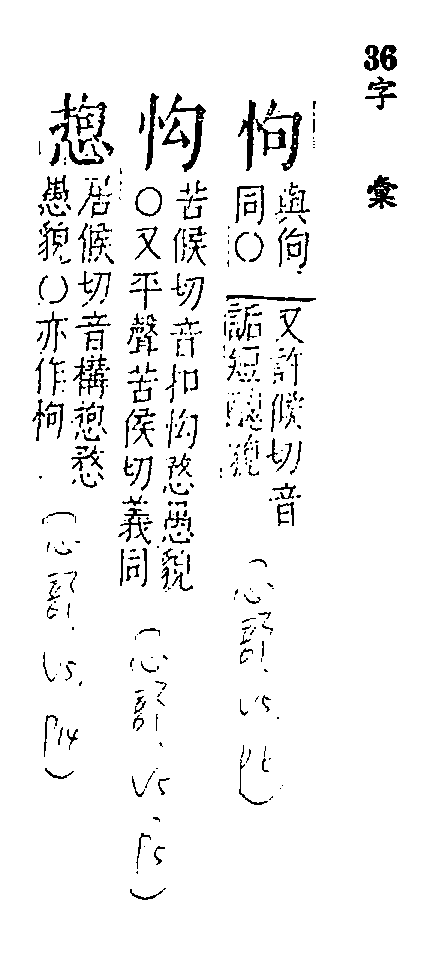 36 字彙
怐
與佝
同〇
又許候切音
詬短貌
(心部. V5. P6)
苦候切音扣愗愚貌
〇又平聲苦侯切義同
(心部. V5. P5)
居候切音構愗
愚貌〇亦作怐
(心部. V5. P14)